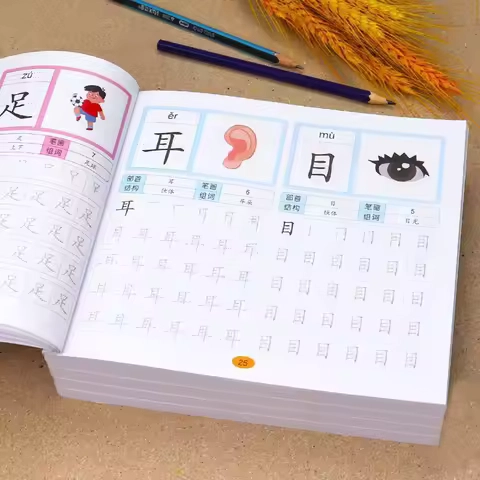 zú
足
笔画 7
组词 足球
足 足 足 足
足 足 足 足
足 足 足
ěr
耳
部首 耳 笔画 6
结构 独体 组词 耳朵
耳
耳 耳 耳 耳 耳
耳 耳 耳 耳 耳
耳 耳 耳 耳 耳
耳 耳 耳 耳 耳
mù
目
部首 目 笔画 5
结构 独体 组词 目光
目 目 目
目 目 目 目 目 目
目 目 目 目 目 目
目 目 目 目 目 目
目 目 目 目 目 目
25